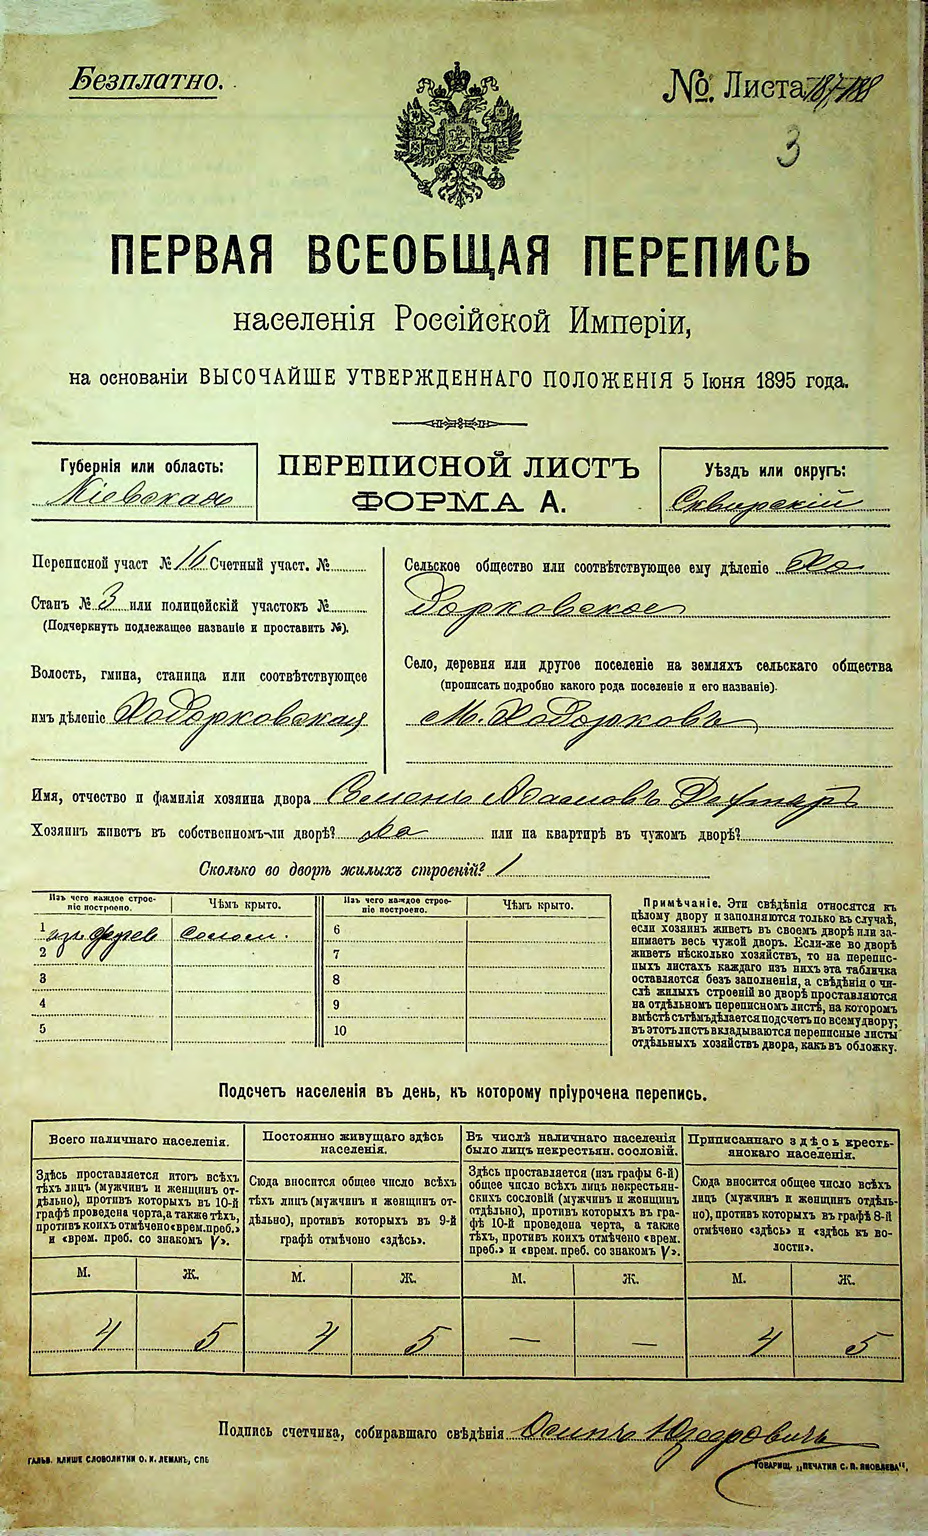 Безплатно.
№. Листа 187-188
3
ПЕРВАЯ ВСЕОБЩАЯ ПЕРЕПИСЬ
населенія Россійской Имперіи,
на основаніи ВЫСОЧАЙШЕ УТВЕРЖДЕННАГО ПОЛОЖЕНІЯ 5 Іюня 1895 года.
Губернія или область:
Кіевская
ПЕРЕПИСНОЙ ЛИСТЪ
ФОРМА А.
Уѣздъ или округъ:
Сквирскій
Переписной участ № 16 Счетный участ. №
Станъ № 3 или полицейскій участокъ №
(Подчеркнуть подлежащее названіе и проставить №).
Волость, гмина, станица или соотвѣтствующее
имъ дѣленіе Ходорковская
Сельское общество или соотвѣтствующее ему дѣленіе Хо
дорковское
Село, деревня или другое поселеніе на земляхъ сельскаго общества
(прописать подробно какого рода поселеніе и его названіе).
М. Ходорковъ
Имя, отчество и фамилія хозяина двора Семенъ
Хозяинъ живетъ въ собственномъ-ли дворѣ? да или на квартирѣ въ чужомъ дворѣ?
Сколько во дворѣ жилыхъ строеній? 1
Изъ чего каждое строе-
ніе построено.
Чѣмъ крыто.
Изъ чего каждое строе-
ніе построено.
Чѣмъ крыто.
1 изъ дерев солом.
2
3
4
5
6
7
8
9
10
Примѣчаніе. Эти свѣдѣнія относятся къ
цѣлому двору и заполняются только въ случаѣ,
если хозяинъ живетъ въ своемъ дворѣ или за-
нимаетъ весь чужой дворъ. Если-же во дворѣ
живетъ нѣсколько хозяйствъ, то на перепис-
ныхъ листахъ каждаго изъ нихъ эта табличка
оставляется безъ заполненія, а свѣдѣнія о чи-
слѣ жилыхъ строеній во дворѣ проставляются
на отдѣльномъ переписномъ листѣ, на которомъ
вмѣстѣ съ тѣмъ дѣлается подсчетъ по всему двору;
въ этотъ листъ вкладываются переписные листы
отдѣльныхъ хозяйствъ двора, какъ въ обложку.
Подсчетъ населенія въ день, къ которому пріурочена перепись.
Всего наличнаго населенія.
Здѣсь проставляется итогъ всѣхъ
тѣхъ лицъ (мужчинъ и женщинъ от-
дѣльно), противъ которыхъ въ 10-й
графѣ проведена черта, а также тѣхъ,
противъ коихъ отмѣчено «врем. преб.»
и «врем. преб. со знакомъ V».
М. Ж.
4 5
Постоянно живущаго здѣсь
населенія.
Сюда вносится общее число всѣхъ
тѣхъ лицъ (мужчинъ и женщинъ от-
дѣльно), противъ которыхъ въ 9-й
графѣ отмѣчено «здѣсь».
М. Ж.
4 5
Въ числѣ наличнаго населенія
было лицъ некрестьян. сословій.
Здѣсь проставляется (изъ графы 6-й)
общее число всѣхъ лицъ некрестьян-
скихъ сословій (мужчинъ и женщинъ
отдѣльно), противъ которыхъ въ гра-
фѣ 10-й проведена черта, а также
тѣхъ, противъ коихъ отмѣчено «врем.
преб.» и «врем. преб. со знакомъ V».
М. Ж.
— —
Приписаннаго здѣсь кресть-
янскаго населенія.
Сюда вносится общее число всѣхъ
лицъ (мужчинъ и женщинъ отдѣль-
но), противъ которыхъ въ графѣ 8-й
отмѣчено «здѣсь» и «здѣсь къ во-
лости».
М. Ж.
4 5
Подпись счетчика, собиравшаго свѣдѣнія Осипъ
ГАЛЬВ. КЛИШЕ СЛОВОЛИТНИ О. И. ЛЕМАНЪ, СПБ
ТОВАРИЩ. „ПЕЧАТНЯ С. П. ЯКОВЛЕВА“,